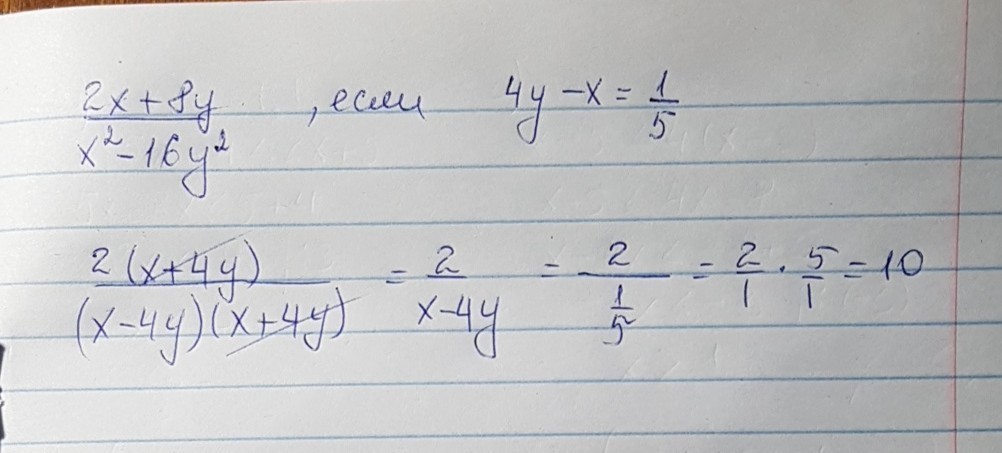 2x+8y / x²-16y² , если 4y-x = 1/5
2(x+4y) / (x-4y)(x+4y) = 2 / x-4y = 2 / 1/5 = 2/1 · 5/1 = 10